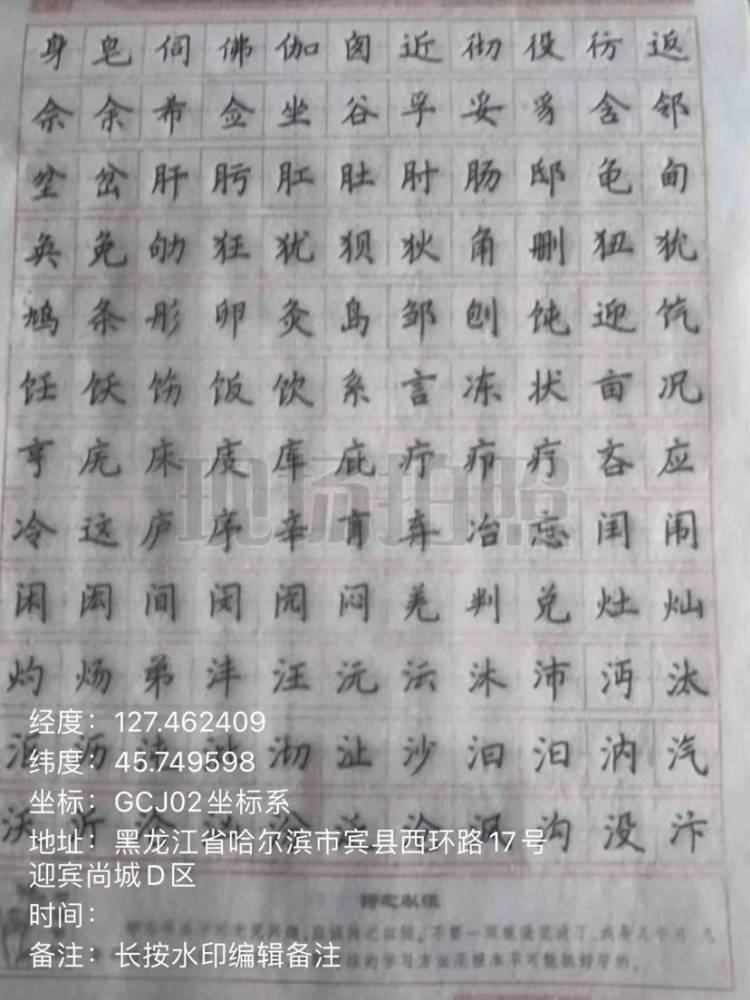 身皂伺佛伽囱近彻役彷返
佘余希佥坐谷孚妥豸含邻
坌岔肝肟肛肚肘肠邸龟甸
奂免劬狂犹狈狄角删狃犹
鸠条彤卯灸岛邹刨饨迎饩
饪饫饬饭饮系言冻状亩况
亨庑床庋库庇疗疖疗吝应
冷这庐序辛肓弃冶忘闰闹
闲闳间闵闶闷羌判兑灶灿
灼炀弟沣汪沅沄沐沛沔汰
沥沏沚沙汩汨汭汽
沃沂沟没汴
现场拍照
经度：127.462409
纬度：45.749598
坐标：GCJ02坐标系
地址：黑龙江省哈尔滨市宾县西环路17号
迎宾尚城D区
时间：
备注：长按水印编辑备注